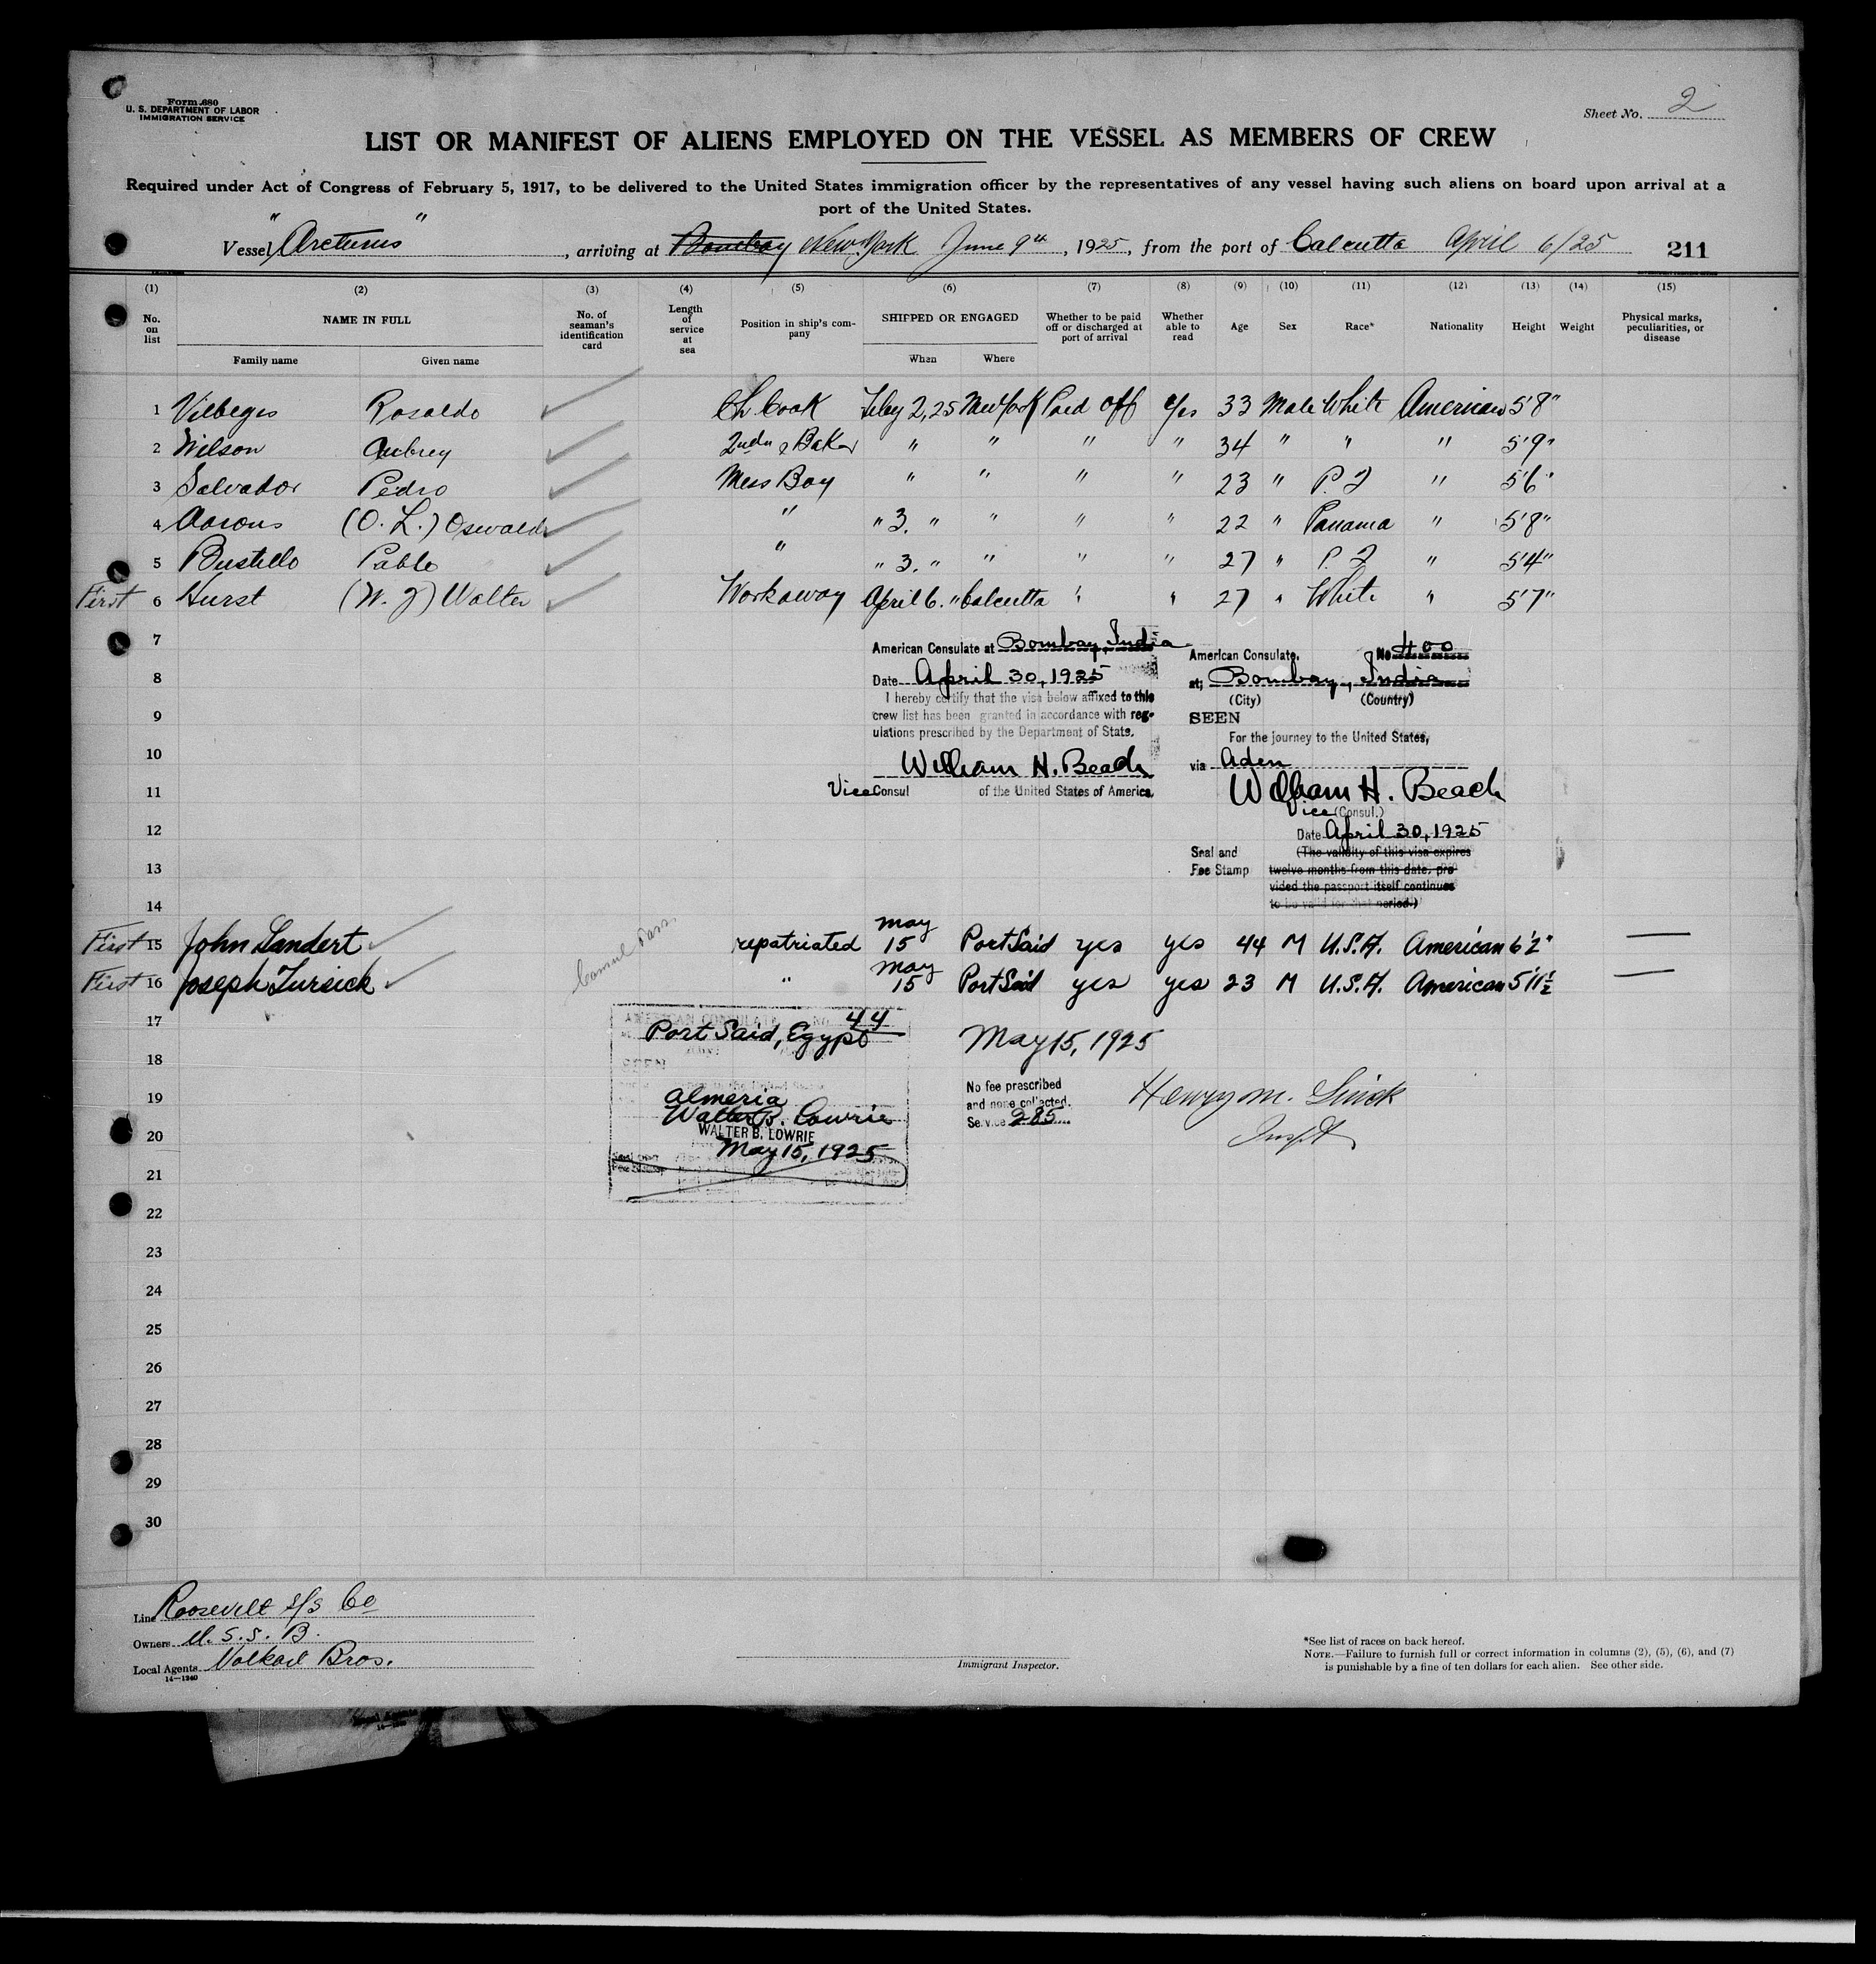 Form 680
U. S. DEPARTMENT OF LABOR
IMMIGRATION SERVICE
Sheet No. 2
LIST OR MANIFEST OF ALIENS EMPLOYED ON THE VESSEL AS MEMBERS OF CREW
Required under Act of Congress of February 5, 1917, to be delivered to the United States immigration officer by the representatives of any vessel having such aliens on board upon arrival at a
port of the United States.
Vessel "Arcturus", arriving at Bombay New York June 9th, 1925, from the port of Calcutta April 6/25 211
(1) (2) (3) (4) (5) (6) (7) (8) (9) (10) (11) (12) (13) (14) (15)
No. on list NAME IN FULL No. of seaman's identification card Length of service at sea Position in ship's company SHIPPED OR ENGAGED Whether to be paid off or discharged at port of arrival Whether able to read Age Sex Race* Nationality Height Weight Physical marks, peculiarities, or disease
Family name Given name When Where
1 Rosaldo Ch Cook Feby 2, 25 New York Paid off Yes 33 Male White American 5'8"
2 Wilson Aubrey 2nd & Baker " " " " 34 " " " 5'9"
3 Salvador Pedro Mess Boy " " " " 23 " P. I " 5'6"
4 Aarons (O. L.) Oswald " " 3. " " " " 22 " Panama " 5'8"
5 Bustello Pablo " " 3. " " " " 27 " P. I " 5'4"
First 6 Hurst (W. J) Walter Workaway April 6. " Calcutta " " 27 " White " 5'7"
7
8
9
10
11
12
13
14
American Consulate at Bombay, India
Date April 30, 1925
I hereby certify that the visa below affixed to this
crew list has been granted in accordance with reg-
ulations prescribed by the Department of State.
William H. Beach
Vice Consul of the United States of America.
American Consulate. No 400
at; Bombay, India
(City) (Country)
SEEN
For the journey to the United States,
via Aden
William H. Beach
Vice (Consul.)
Date April 30, 1925
Seal and
Fee Stamp
(The validity of this visa expires
twelve months from this date, pro-
vided the passport itself continues
to be valid for that period.)
First 15 John Landert repatriated May 15 Port Said yes yes 44 M U.S.A. American 6'2" —
First 16 Joseph Tursick " May 15 Port Said yes yes 23 M U.S.A. American 5'11½ —
17
18
19
20
21
22
23
24
25
26
27
28
29
30
AMERICAN CONSULATE No 44
Port Said, Egypt
SEEN
Almeria
Walter B. Lowrie
WALTER B. LOWRIE
May 15, 1925
May 15, 1925
No fee prescribed
and none collected.
Service 285
Henry M.
Inspt
Line Roosevelt S/S Co
Owners U. S. S. B.
Local Agents Bros.
14—1240
Immigrant Inspector.
*See list of races on back hereof.
NOTE.—Failure to furnish full or correct information in columns (2), (5), (6), and (7)
is punishable by a fine of ten dollars for each alien. See other side.